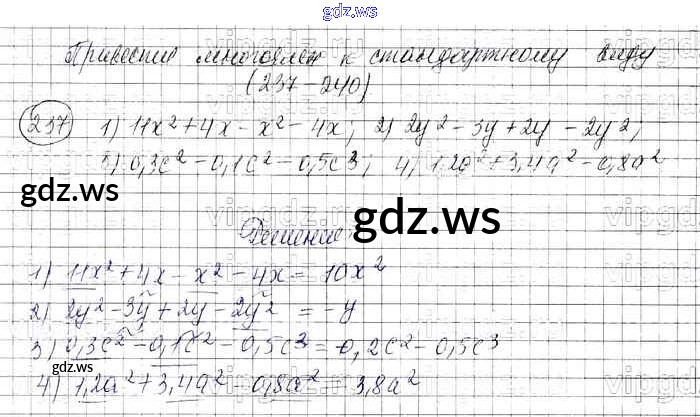 gdz.ws
Привести многочлен к стандартному виду
(237-240)
237 1) 11x²+4x-x²-4x; 2) 2y²-3y+2y-2y²;
3) 0,3c²-0,1c²-0,5c³; 4) 1,2a²+3,4a²-0,8a²
gdz.ws
gdz.ws
Решение:
1) 11x²+4x-x²-4x=10x²
2) 2y²-3y+2y-2y²=-y
3) 0,3c²-0,1c²-0,5c³=0,2c²-0,5c³
gdz.ws
4) 1,2a²+3,4a²-0,8a²=3,8a²